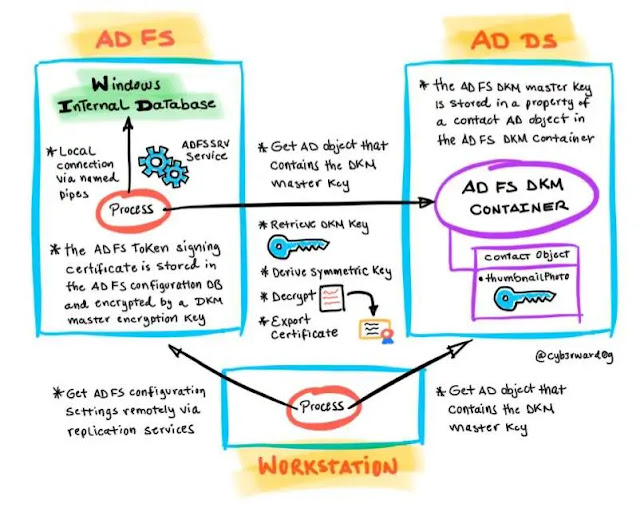 AD FS
Windows
Internal Database
* Local
connection
via named
pipes
ADFSSRV
Service
Process
* the AD FS Token signing
certificate is stored in
the AD FS configuration DB
and encrypted by a DKM
master encryption Key
* Get AD object that
contains the DKM
master Key
* Retrieve DKM Key
* Derive Symmetric Key
* Decrypt
* Export
Certificate
AD DS
* the AD FS DKM master Key
is stored in a property of
a contact AD object in
the AD FS DKM Container
AD FS DKM
CONTAINER
contact Object
• thumbnailPhoto
@cyb3rward0g
* Get AD FS configuration
Settings remotely via
replication services
Process
* Get AD object that
contains the DKM
master Key
WORKSTATION